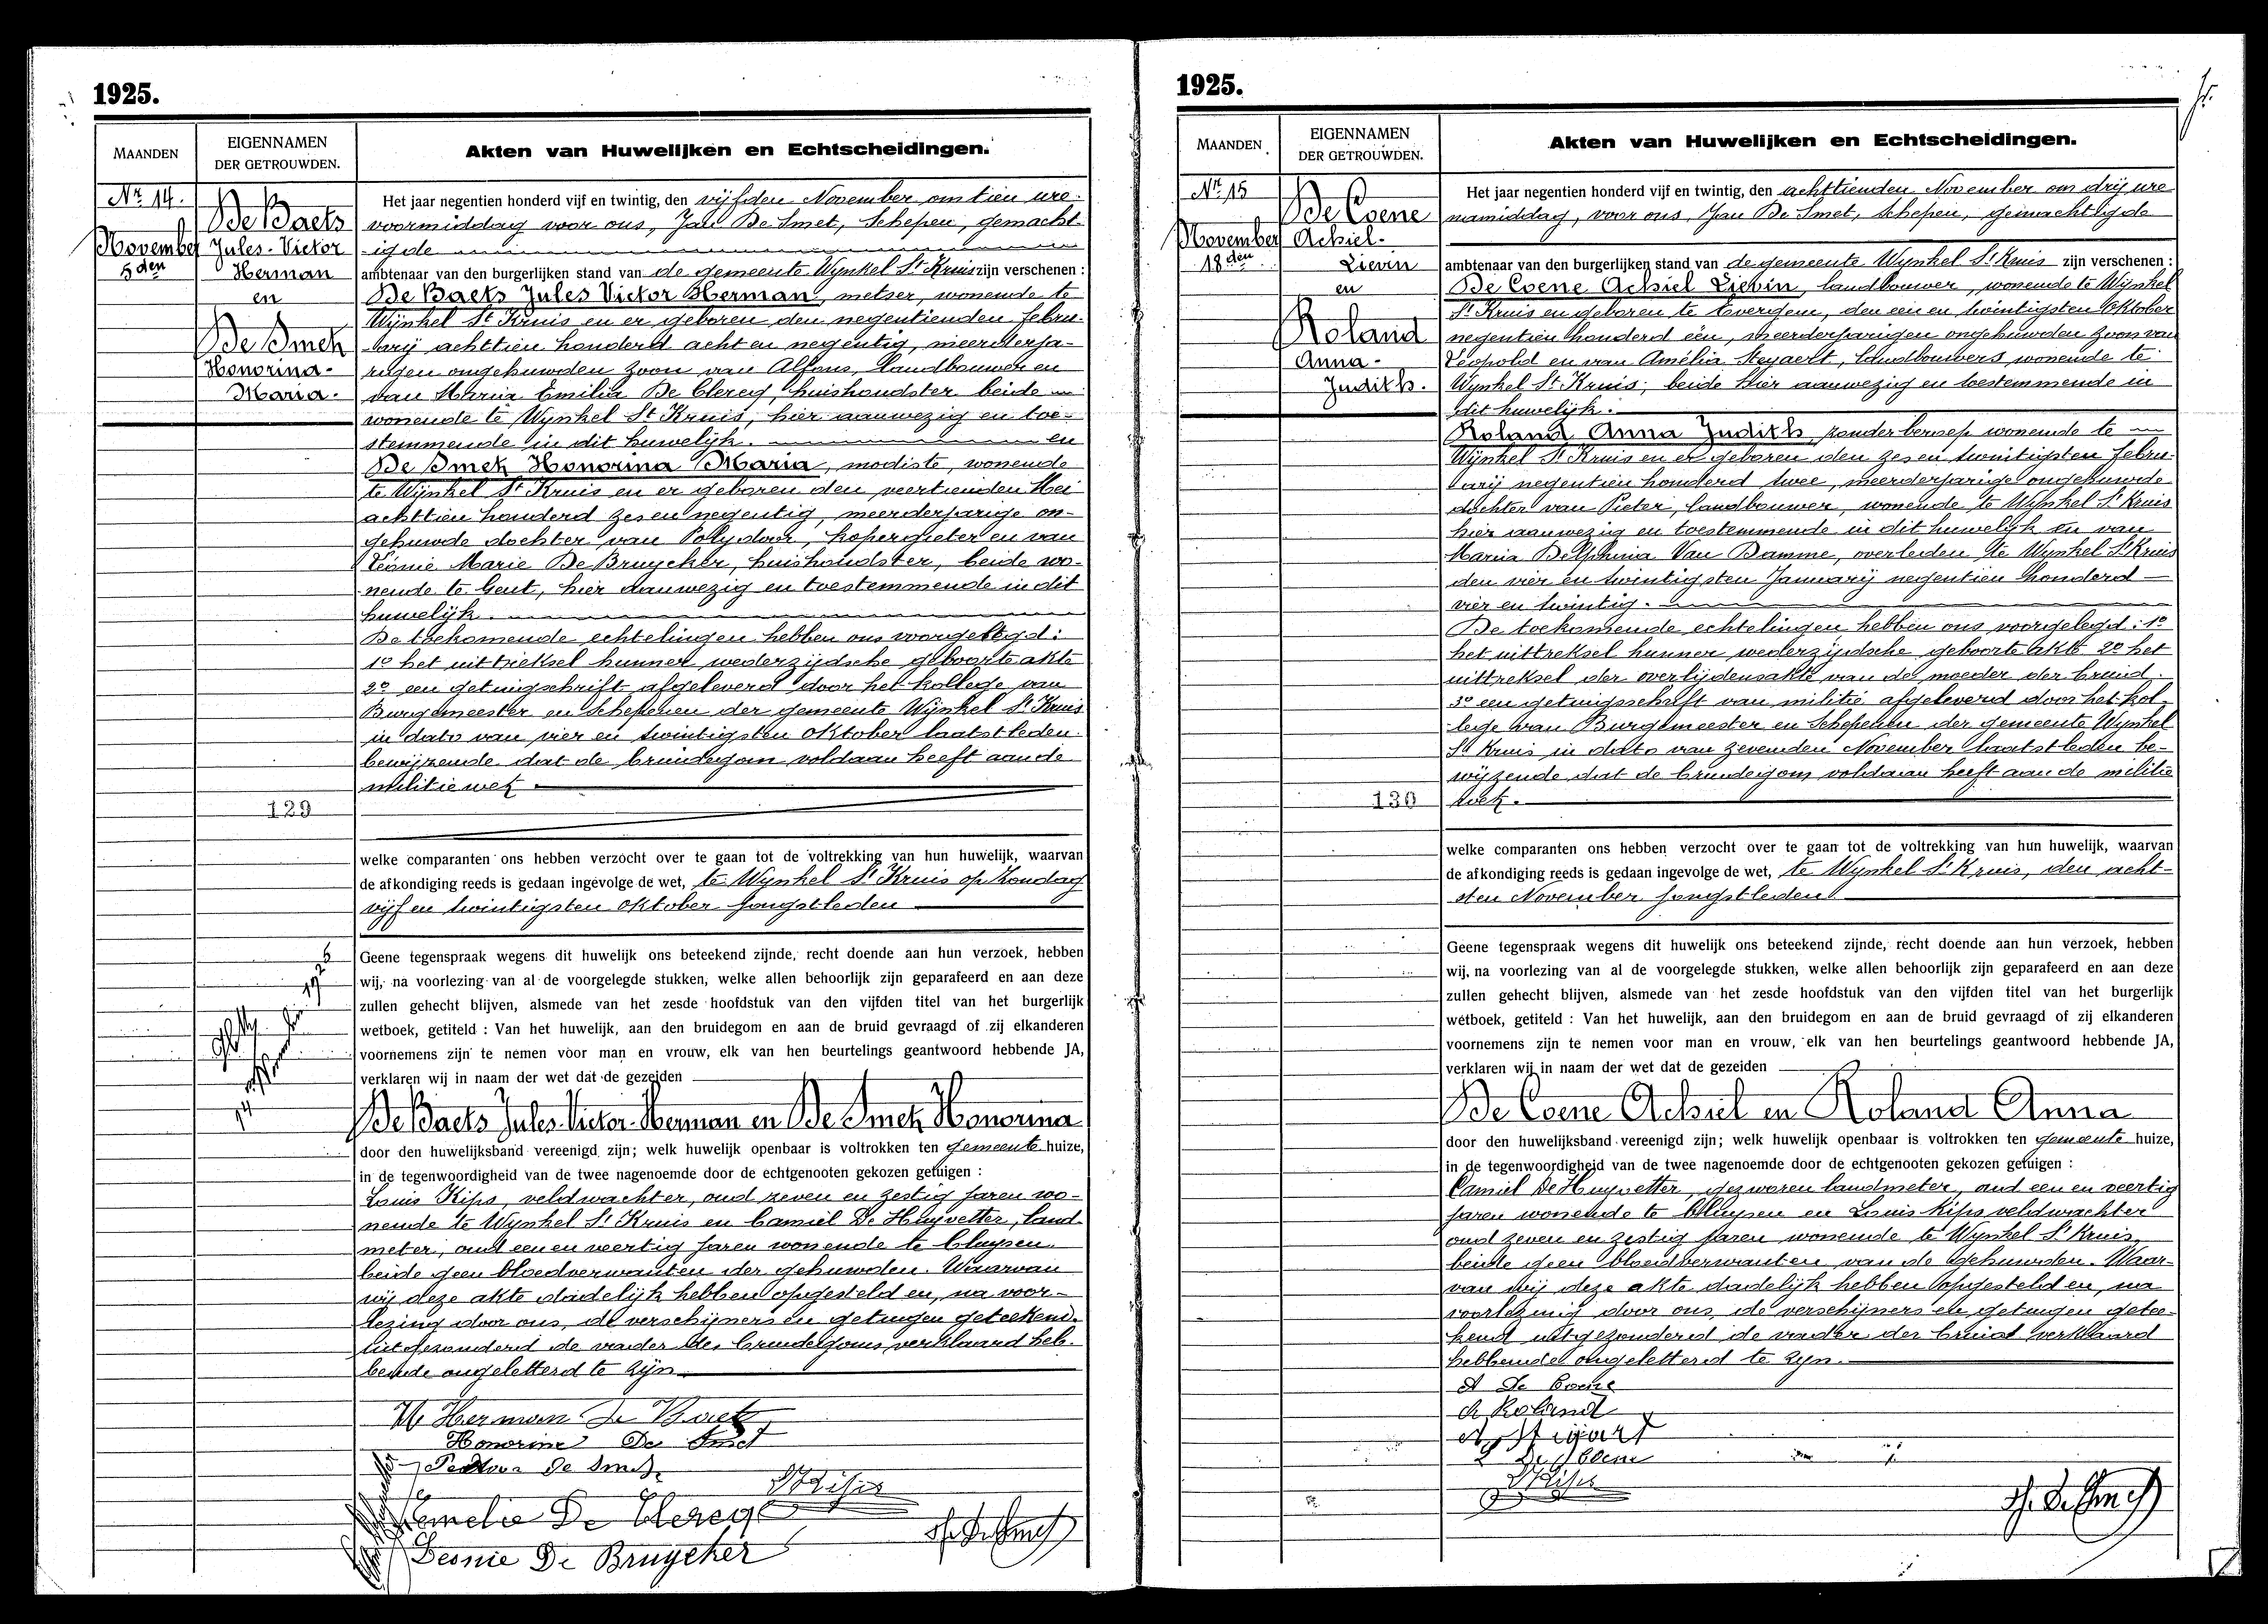 1925.
MAANDEN
EIGENNAMEN
DER GETROUWDEN.
Akten van Huwelijken en Echtscheidingen.
Nr 14.
November
5den
De Baets
Jules-Victor
Herman
en
De Smet
Honorina-
Maria.
129
Het jaar negentien honderd vijf en twintig, den vijfden November om tien ure
voormiddag voor ons, Jan De Smet, Schepen, gemacht-
igde
ambtenaar van den burgerlijken stand van de gemeente Wynkel St Kruis zijn verschenen :
De Baets Jules Victor Herman, metser, wonende te
Wynkel St Kruis en er geboren den negentienden febru-
arij achttien honderd acht en negentig, meerderja-
rigen ongehuwden zoon van Alfons, landbouwer en
van Maria Emilia De Clercq, huishoudster beide
wonende te Wynkel St Kruis, hier aanwezig en toe-
stemmende in dit huwelijk. en
De Smet Honorina Maria, modiste, wonende
te Wynkel St Kruis en er geboren den veertienden Mei
achttien honderd zes en negentig, meerderjarige on-
gehuwde dochter van Polydoor, kopergieter en van
Léonie Marie De Bruycker, huishoudster, beide wo-
nende te Gent, hier aanwezig en toestemmende in dit
huwelijk.
De toekomende echtelingen hebben ons voorgelegd:
1o het uittreksel hunner wederzijdsche geboorte akte
2o een getuigschrift afgeleverd door het kollege van
Burgemeester en Schepenen der gemeente Wynkel St Kruis
in dato van vier en twintigsten Oktober laatstleden
bewijzende dat de bruidegom voldaan heeft aan de
militiewet
welke comparanten ons hebben verzocht over te gaan tot de voltrekking van hun huwelijk, waarvan
de afkondiging reeds is gedaan ingevolge de wet, te Wynkel St Kruis op Zondag
vijf en twintigsten Oktober jongstleden
Geene tegenspraak wegens dit huwelijk ons beteekend zijnde, recht doende aan hun verzoek, hebben
wij, na voorlezing van al de voorgelegde stukken, welke allen behoorlijk zijn geparafeerd en aan deze
zullen gehecht blijven, alsmede van het zesde hoofdstuk van den vijfden titel van het burgerlijk
wetboek, getiteld : Van het huwelijk, aan den bruidegom en aan de bruid gevraagd of zij elkanderen
voornemens zijn te nemen voor man en vrouw, elk van hen beurtelings geantwoord hebbende JA,
verklaren wij in naam der wet dat de gezeiden
De Baets Jules-Victor-Herman en De Smet Honorina
door den huwelijksband vereenigd zijn; welk huwelijk openbaar is voltrokken ten gemeente huize,
in de tegenwoordigheid van de twee nagenoemde door de echtgenooten gekozen getuigen :
Louis Kips, veldwachter, oud zeven en zestig jaren wo-
nende te Wynkel St Kruis en Camiel De Huyvetter, land-
meter, oud een en veertig jaren wonende te Cluysen
beide geen bloedverwanten der gehuwden. Waarvan
wij deze akte dadelijk hebben opgesteld en, na voor-
lezing door ons, de verschijners en getuigen geteekend.
uitgezonderd de vader des bruidegoms verklaard heb-
bende ongeletterd te zijn
Herman De Baets
Honorine De Smet
De Smet
Emelie De Clercq
LKips
Leonie De Bruycker
Jh. De Smet
1925.
MAANDEN
EIGENNAMEN
DER GETROUWDEN.
Akten van Huwelijken en Echtscheidingen.
Nr 15
November
18den
De Coene
Achiel-
Lievin
en
Roland
Anna-
Judith.
130
Het jaar negentien honderd vijf en twintig, den achttienden November om drij ure
namiddag, voor ons, Jan De Smet, Schepen, gemachtigde
ambtenaar van den burgerlijken stand van de gemeente Wynkel St Kruis zijn verschenen :
De Coene Achiel Lievin, landbouwer, wonende te Wynkel
St Kruis en geboren te Evergem, den een en twintigsten Oktober
negentien honderd één, meerderjarigen ongehuwden zoon van
Léopold en van Amélia Steyaert, landbouwers wonende te
Wynkel St Kruis, beide hier aanwezig en toestemmende in
dit huwelijk.
Roland Anna Judith, zonder beroep wonende te
Wynkel St Kruis en er geboren den zes en twintigsten febru-
arij negentien honderd twee, meerderjarige ongehuwde
dochter van Pieter, landbouwer, wonende te Wynkel St Kruis
hier aanwezig en toestemmende in dit huwelijk en van
Maria Delphina Van Damme, overleden te Wynkel St Kruis
den vier en twintigsten Januarij negentien honderd
vier en twintig.
De toekomende echtelingen hebben ons voorgelegd: 1o
het uittreksel hunner wederzijdsche geboorte akte 2o het
uittreksel der overlijdensakte van de moeder der bruid
3o een getuigschrift van militie afgeleverd door het kol-
lege van Burgemeester en Schepenen der gemeente Wynkel
St Kruis in dato van zevenden November laatstleden be-
wijzende dat de bruidegom voldaan heeft aan de militie
wet.
welke comparanten ons hebben verzocht over te gaan tot de voltrekking van hun huwelijk, waarvan
de afkondiging reeds is gedaan ingevolge de wet, te Wynkel St Kruis, den acht-
sten November jongstleden
Geene tegenspraak wegens dit huwelijk ons beteekend zijnde, recht doende aan hun verzoek, hebben
wij, na voorlezing van al de voorgelegde stukken, welke allen behoorlijk zijn geparafeerd en aan deze
zullen gehecht blijven, alsmede van het zesde hoofdstuk van den vijfden titel van het burgerlijk
wetboek, getiteld : Van het huwelijk, aan den bruidegom en aan de bruid gevraagd of zij elkanderen
voornemens zijn te nemen voor man en vrouw, elk van hen beurtelings geantwoord hebbende JA,
verklaren wij in naam der wet dat de gezeiden
De Coene Achiel en Roland Anna
door den huwelijksband vereenigd zijn; welk huwelijk openbaar is voltrokken ten gemeente huize,
in de tegenwoordigheid van de twee nagenoemde door de echtgenooten gekozen getuigen :
Camiel De Huyvetter, gezworen landmeter, oud een en veertig
jaren wonende te Cluysen en Louis Kips veldwachter
oud zeven en zestig jaren wonende te Wynkel St Kruis,
beide geen bloedverwanten van de gehuwden. Waar-
van wij deze akte dadelijk hebben opgesteld en, na
voorlezing door ons, de verschijners en getuigen getee-
kend uitgezonderd de vader der bruid verklaard
hebbende ongeletterd te zijn.
A De Coene
A Roland
L De Coene
LKips
Jh. De Smet